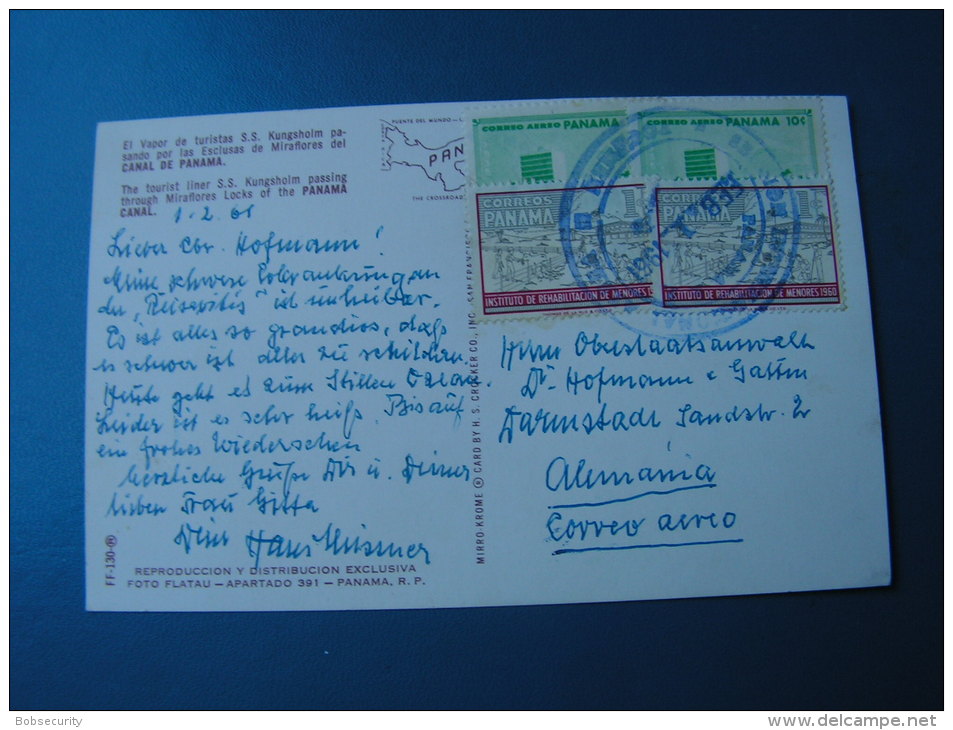 El Vapor de turistas S.S. Kungsholm pa-
sando por las Esclusas de Miraflores del
CANAL DE PANAMA.
The tourist liner S.S. Kungsholm passing
through Miraflores Locks of the PANAMA
CANAL.
1.2.61
Lieber Cbr. Hofmann!
Meine schwere Erkrankung an
der „Reiseritis" ist unheilbar.
Es ist alles so grandios, dass
es schwer ist alles zu schildern.
Heute geht es zum Stillen Ozean.
Leider ist es sehr heiß. Bis auf
ein frohes Wiedersehen
herzliche Grüße Dir u. Deiner
lieben Frau Gitta
Dein Hans
REPRODUCCION Y DISTRIBUCION EXCLUSIVA
FOTO FLATAU — APARTADO 391 — PANAMA, R. P.
FF-130-®
PUENTE DEL MUNDO
PAN
THE CROSSROAD
MIRRO-KROME ® CARD BY H. S. CROCKER CO., INC., SAN FRANCISCO
CORREO AEREO PANAMA
CORREO AEREO PANAMA 10¢
CORREOS 1c
PANAMA
INSTITUTO DE REHABILITACION DE MENORES
CORREOS 1c
PANAMA
INSTITUTO DE REHABILITACION DE MENORES 1960
Herrn Oberstaatsanwalt
Dr. Hofmann & Gattin
Darmstadt Landstr. 2
Alemánia
Correo aereo
Bobsecurity
www.delcampe.net